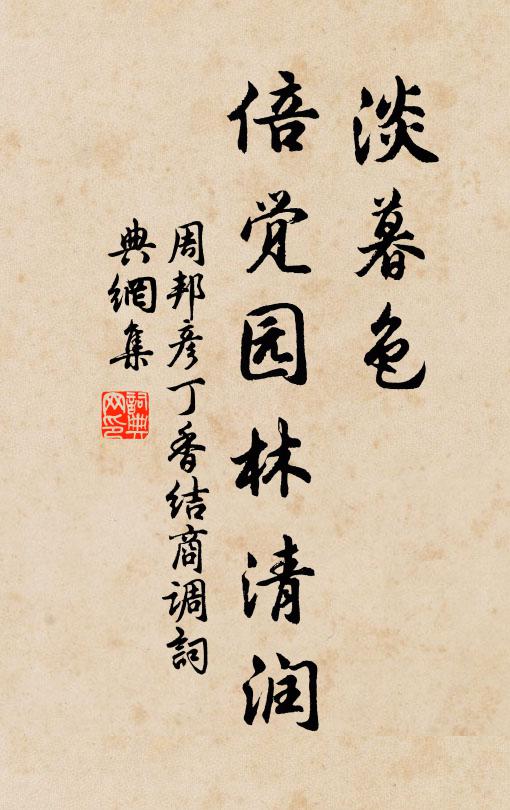 淡暮色
倍觉园林清润
周邦彦丁香结商调詞
典網集
詞典网印